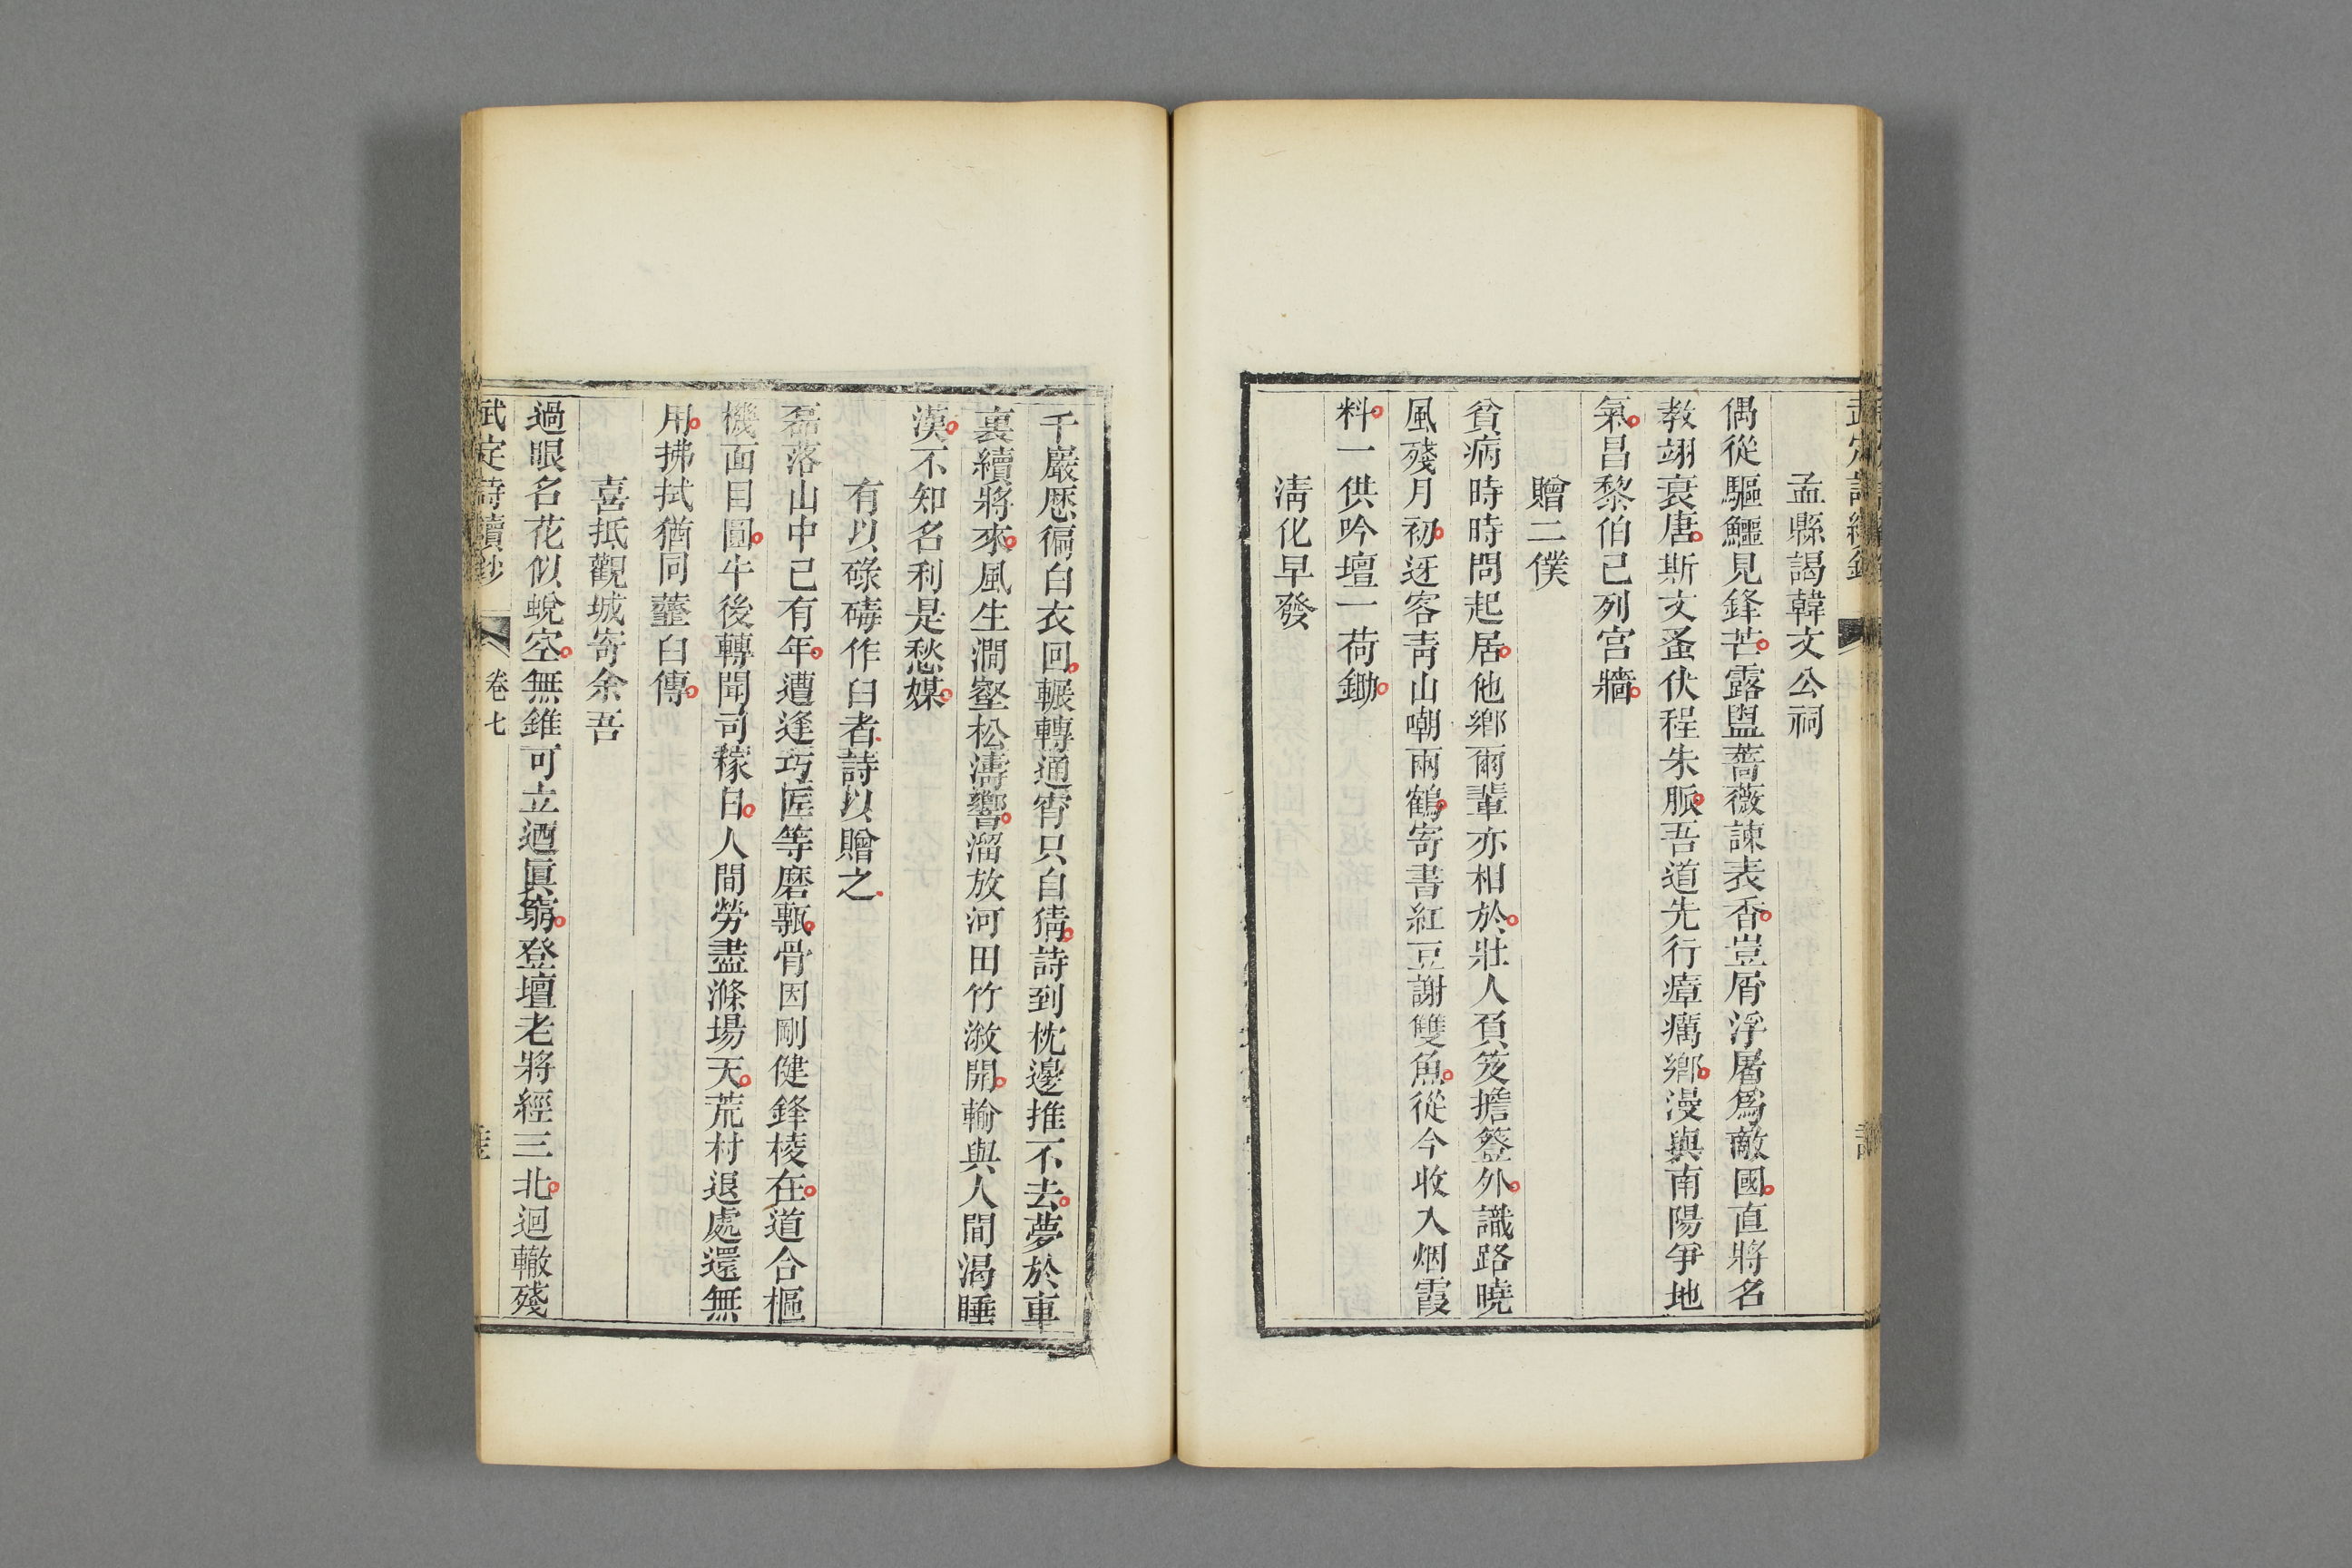 孟縣謁韓文公祠
偶從驅鱷見鋒芒露盥薔薇諫表香豈屑浮屠爲敵國直將名
教翊衰唐斯文蚤伏程朱脈吾道先行瘴癘鄉漫與南陽爭地
氣昌黎伯已列宫牆
贈二僕
貧病時時問起居他鄉爾輩亦相於壯人負笈擔簦外識路曉
風殘月初迓客靑山嘲兩鶴寄書紅豆謝雙魚從今收入烟霞
料一供吟壇一荷鋤
淸化早發
千巖厯徧白衣回輾轉通宵只自猜詩到枕邊推不去夢於車
裏續將來風生澗壑松濤響溜放河田竹潊開輸與人間渴睡
漢不知名利是愁媒
有以碌碡作臼者詩以贈之
磊落山中已有年遭逢巧匠等磨甎骨因剛健鋒棱在道合樞
機面目圓牛後轉聞司稼日人間勞盡滌場天荒村退處還無
用拂拭猶同虀臼傳
喜抵觀城寄余吾
過眼名花似蛻空無錐可立迺眞窮登壇老將經三北迴轍殘
武定詩續鈔 卷七